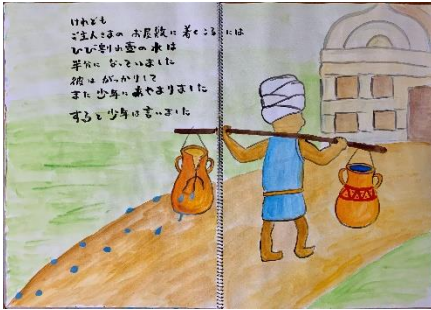 けれども
ご主人さまの お屋敷に 着くころには
ひび割れ壺の 水は
半分に なっていました
彼は がっかりして
また 少年に あやまりました
すると 少年は 言いました